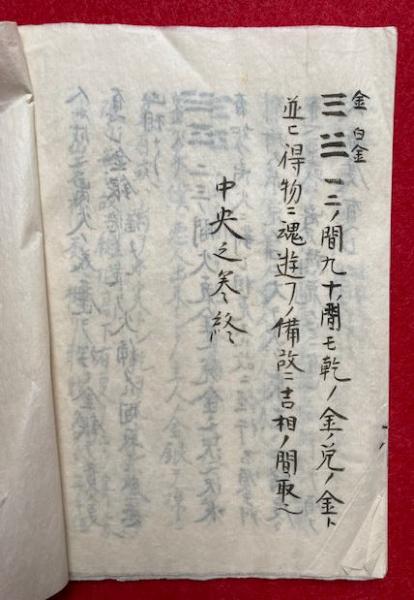 金 白金
☰ ☱ 一二ノ間九十ノ間モ乾ノ金ノ兌ノ金ト
並ニ得物ニ魂遊フノ備故ニ吉相ノ間ヲ取ル
中央之巻終